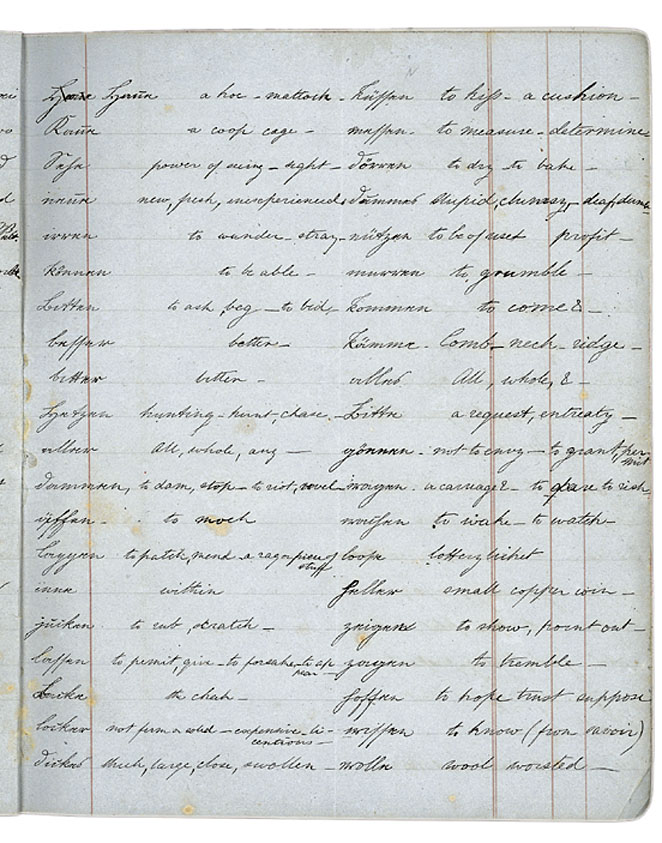 Haue a hoe – mattock – küssen to kiss – a cushion –
Kaue a coop cage – messen – to measure – determine
Sehe power of seeing – sight – dörren to dry – to bake –
neue new, fresh, unexperienced, dummes stupid, clumsy – deaf, dumb
irren to wander – stray – nützen to be of use & profit –
können to be able – murren to grumble –
Bitten to ask, beg – to bid, kommen to come & –
besser better – Kämme – Comb – neck – ridge –
bitter bitter – alles All, whole, & –
Hetzen hunting – hunt, chase – Bitte a request, entreaty –
aller All, whole, any – gönnen – not to envy – to grant, permit
dammen, to dam, stop – to riot, revel – wagen – a carriage & – to dare to risk
äffen – to mock to wake – to watch –
lappen to patch, mend – a rag – piece of stuff loose
inne within Heller small copper coin –
to rub, scratch – zeigen to show, point out –
lassen to permit, give – to forsake – to appear – zagen to tremble –
Backe the cheek – hoffen to hope trust suppose
locker not firm or solid – expensive – licentious – wissen to know (from savoir)
dickes thick, large, close, swollen – wolle wool worsted –